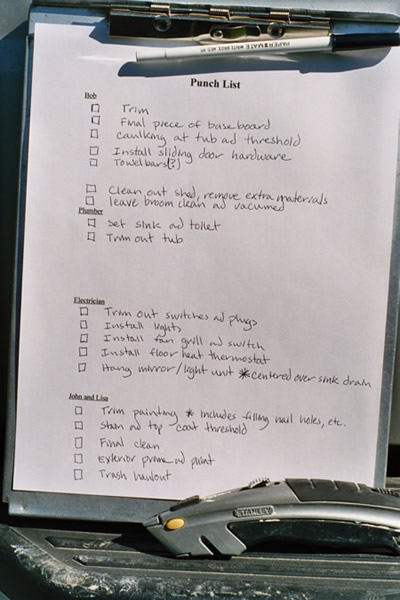 PAPER MATE WRITE BROS. MED. PT.
Punch List
Bob
Trim
Final piece of baseboard
caulking at tub ad threshold
Install sliding door hardware
Towel bars(?)
Clean out shed, remove extra materials
leave broom clean ad vacumed
Plumber
Set sink ad toilet
Trim out tub
Electrician
Trim out switches ad plugs
Install lights
Install fan grill ad switch
Install floor heat thermostat
Hang mirror/light unit * centered over sink drain
John and Lisa
Trim painting * includes filling nail holes, etc.
Stain ad top-coat threshold
Final clean
Exterior prime ad paint
Trash haulout
STANLEY